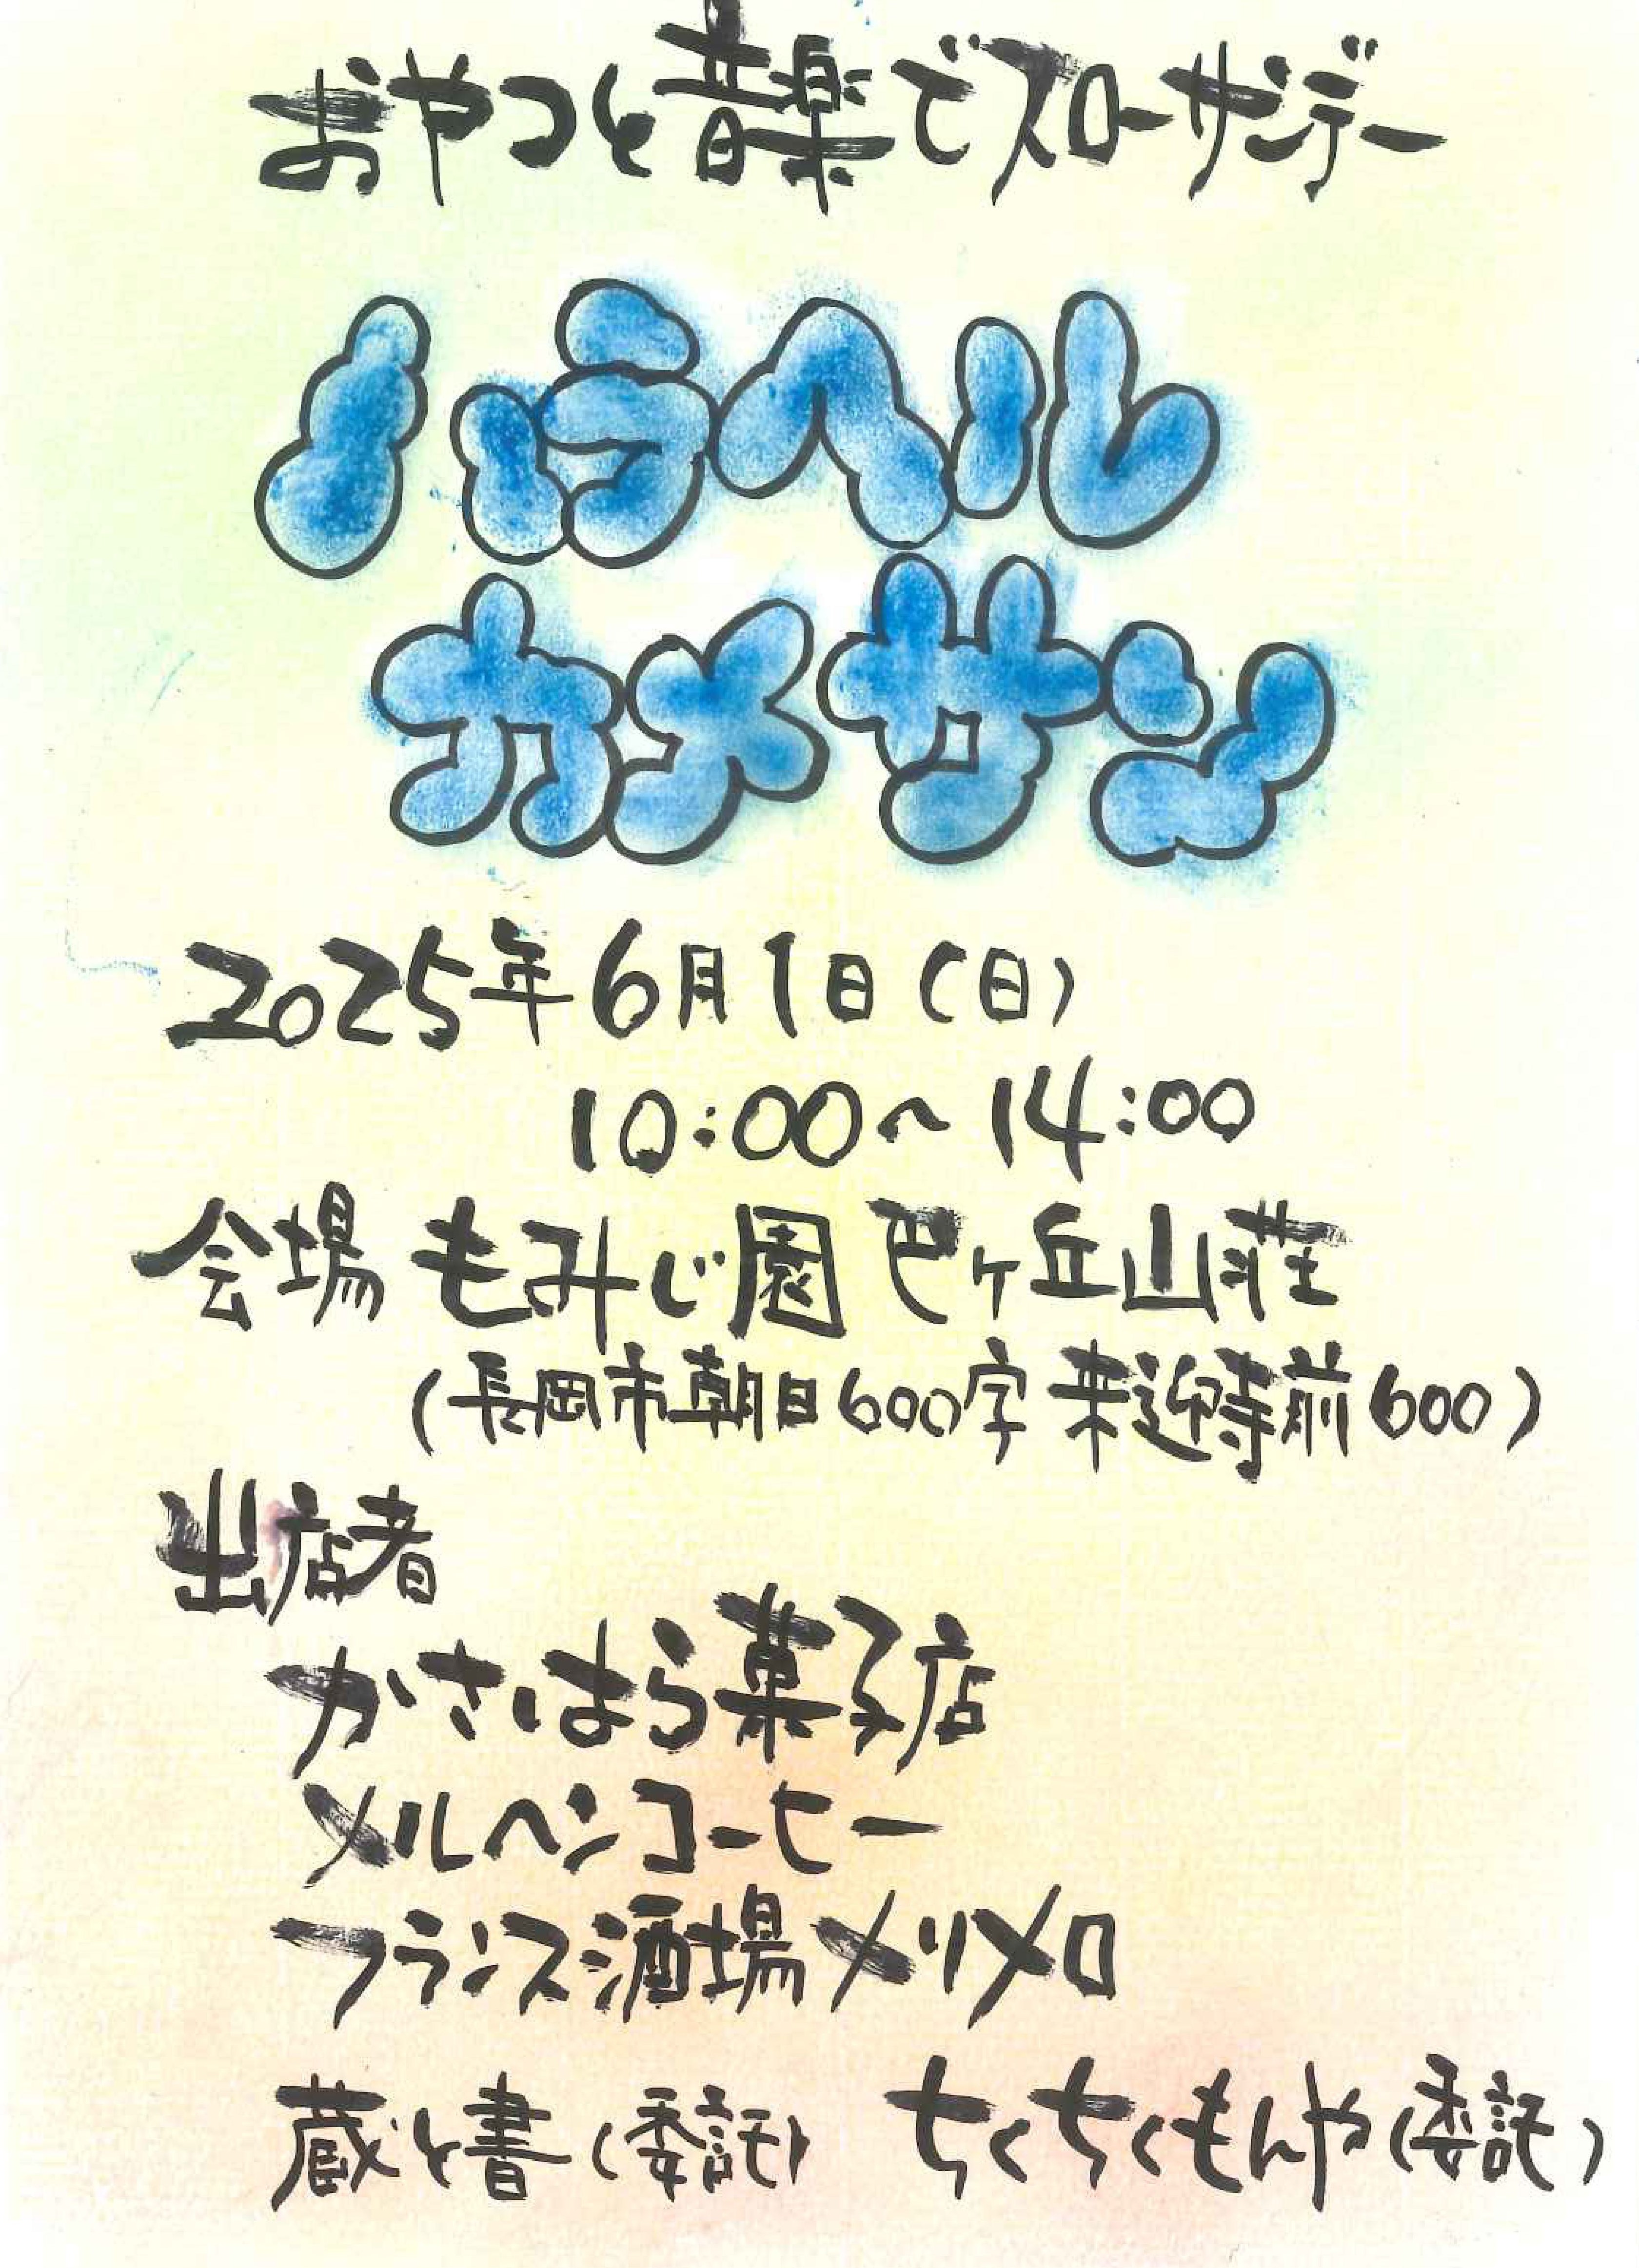 おやつと音楽でスローサンデー
ハラヘル
カメサン
2025年6月1日(日)
10:00〜14:00
会場 もみじ園 巴ヶ丘山荘
(長岡市朝日600字来迎寺前600)
出店者
かさはら菓子店
メルヘンコーヒー
フランス酒場メリメロ
蔵と書(委託) ちくちくもんや(委託)